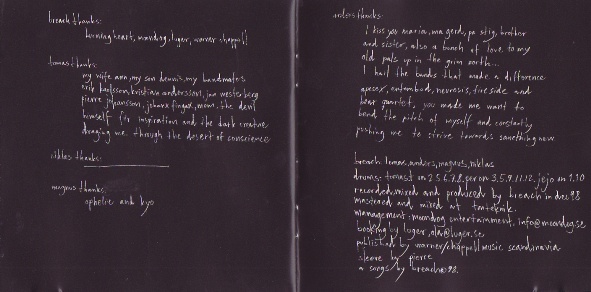 breach thanks:
burning heart, moondog, luger, warner chappell
tomas thanks:
my wife ann, my son dennis, my bandmates
erik karlsson, kristian andersson, jan westerberg
pierre johansson, johanx finger, mom, the devil
himself for inspiration and the dark creature
dragging me through the desert of conscience
niklas thanks:
magnus thanks:
ophelie and kyo
anders thanks:
I kiss you maria, ma gerd, pa stig, brother
and sister, also a bunch of love to my
old pals up in the grim north...
I hail the bands that made a difference
entombed, neurosis, fireside and
bear quartet, you made me want to
bend the pitch of myself and constantly
pushing me to strive towards something new
breach: tomas, anders, magnus, niklas
drums: tomas t on 2.5.6.7.8. per on 3.5.9.11.12. jejo on 1.10
recorded, mixed and produced by breach in dec 98
mastered and mixed at tonteknik.
management: moondog entertainment. info@moondog.se
booking by luger, ola@luger.se
published by warner/chappell music scandinavia
sleeve by pierre
a songs by breach 98.